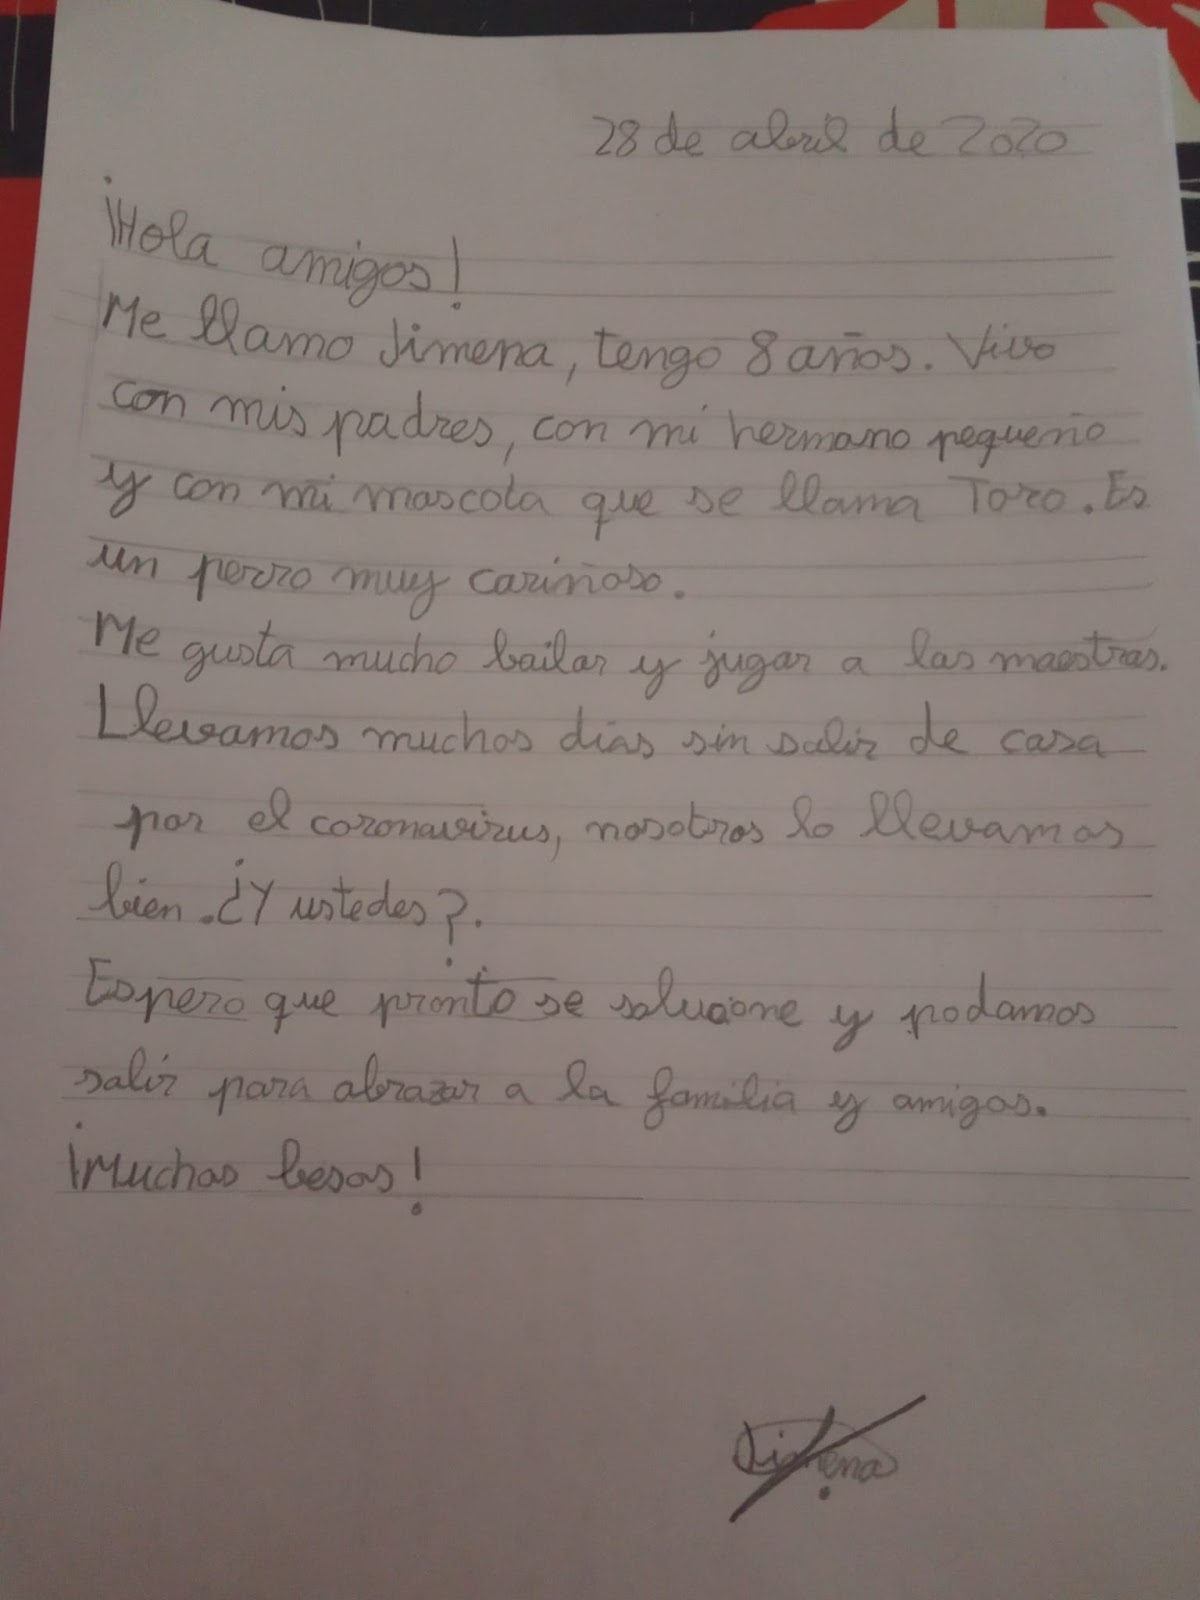 28 de abril de 2020
¡Hola amigos!
Me llamo Jimena, tengo 8 años. Vivo
con mis padres, con mi hermano pequeño
y con mi mascota que se llama Toro. Es
un perro muy cariñoso.
Me gusta mucho bailar y jugar a las maestras.
Llevamos muchos días sin salir de casa
por el coronavirus, nosotros lo llevamos
bien. ¿Y ustedes?.
Espero que pronto se solucione y podamos
salir para abrazar a la familia y amigos.
¡Muchos besos!
Jimena